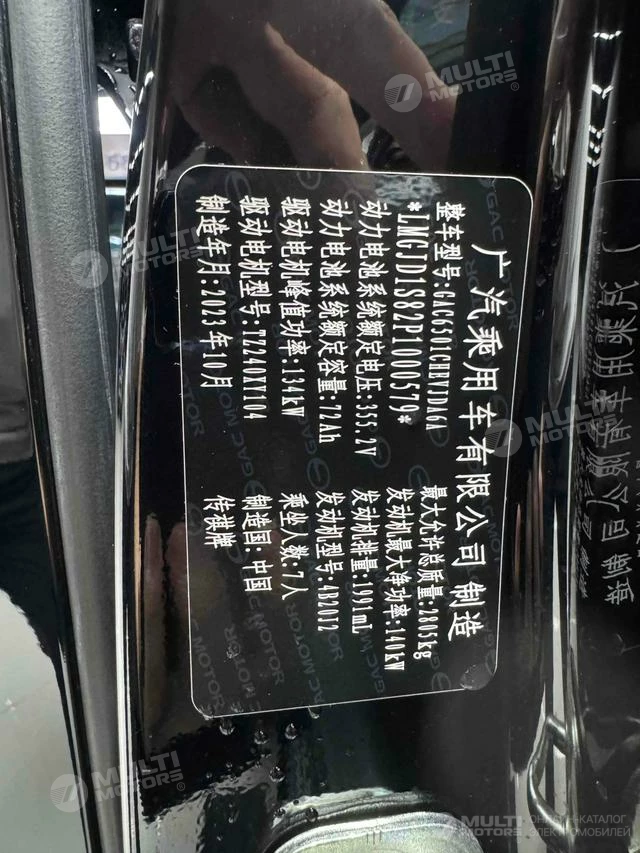 广汽乘用车有限公司 制造
整车型号:GAC6501CHEVJDA6A 最大允许总质量:2805kg
*LMGJD1S82P1000579* 发动机最大净功率:140kW
动力电池系统额定电压:355.2V 发动机排量:1991mL
动力电池系统额定容量:72Ah 发动机型号:4B20J2
驱动电机峰值功率:134kW 乘坐人数:7人
驱动电机型号:TZ240XY104 制造国:中国
制造年月:2023年10月 传祺牌
GAC MOTOR
MULTI MOTORS®
MULTI MOTORS
ОНЛАЙН-КАТАЛОГ
ЭЛЕКТРОМОБИЛЕЙ